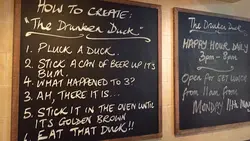 HOW TO CREATE:
"The Drunken Duck"
1. PLUCK A DUCK.
2. STICK A CAN OF BEER UP IT'S
BUM.
4. WHAT HAPPENED TO 3?
3. AH, THERE IT IS...
5. STICK IT IN THE OVEN UNTIL
IT'S GOLDEN BROWN
6. EAT THAT DUCK!!
The Drunken Duck
HAPPY HOUR DAILY
3pm - 8pm
Open for
from 11am from
MONDAY 11th